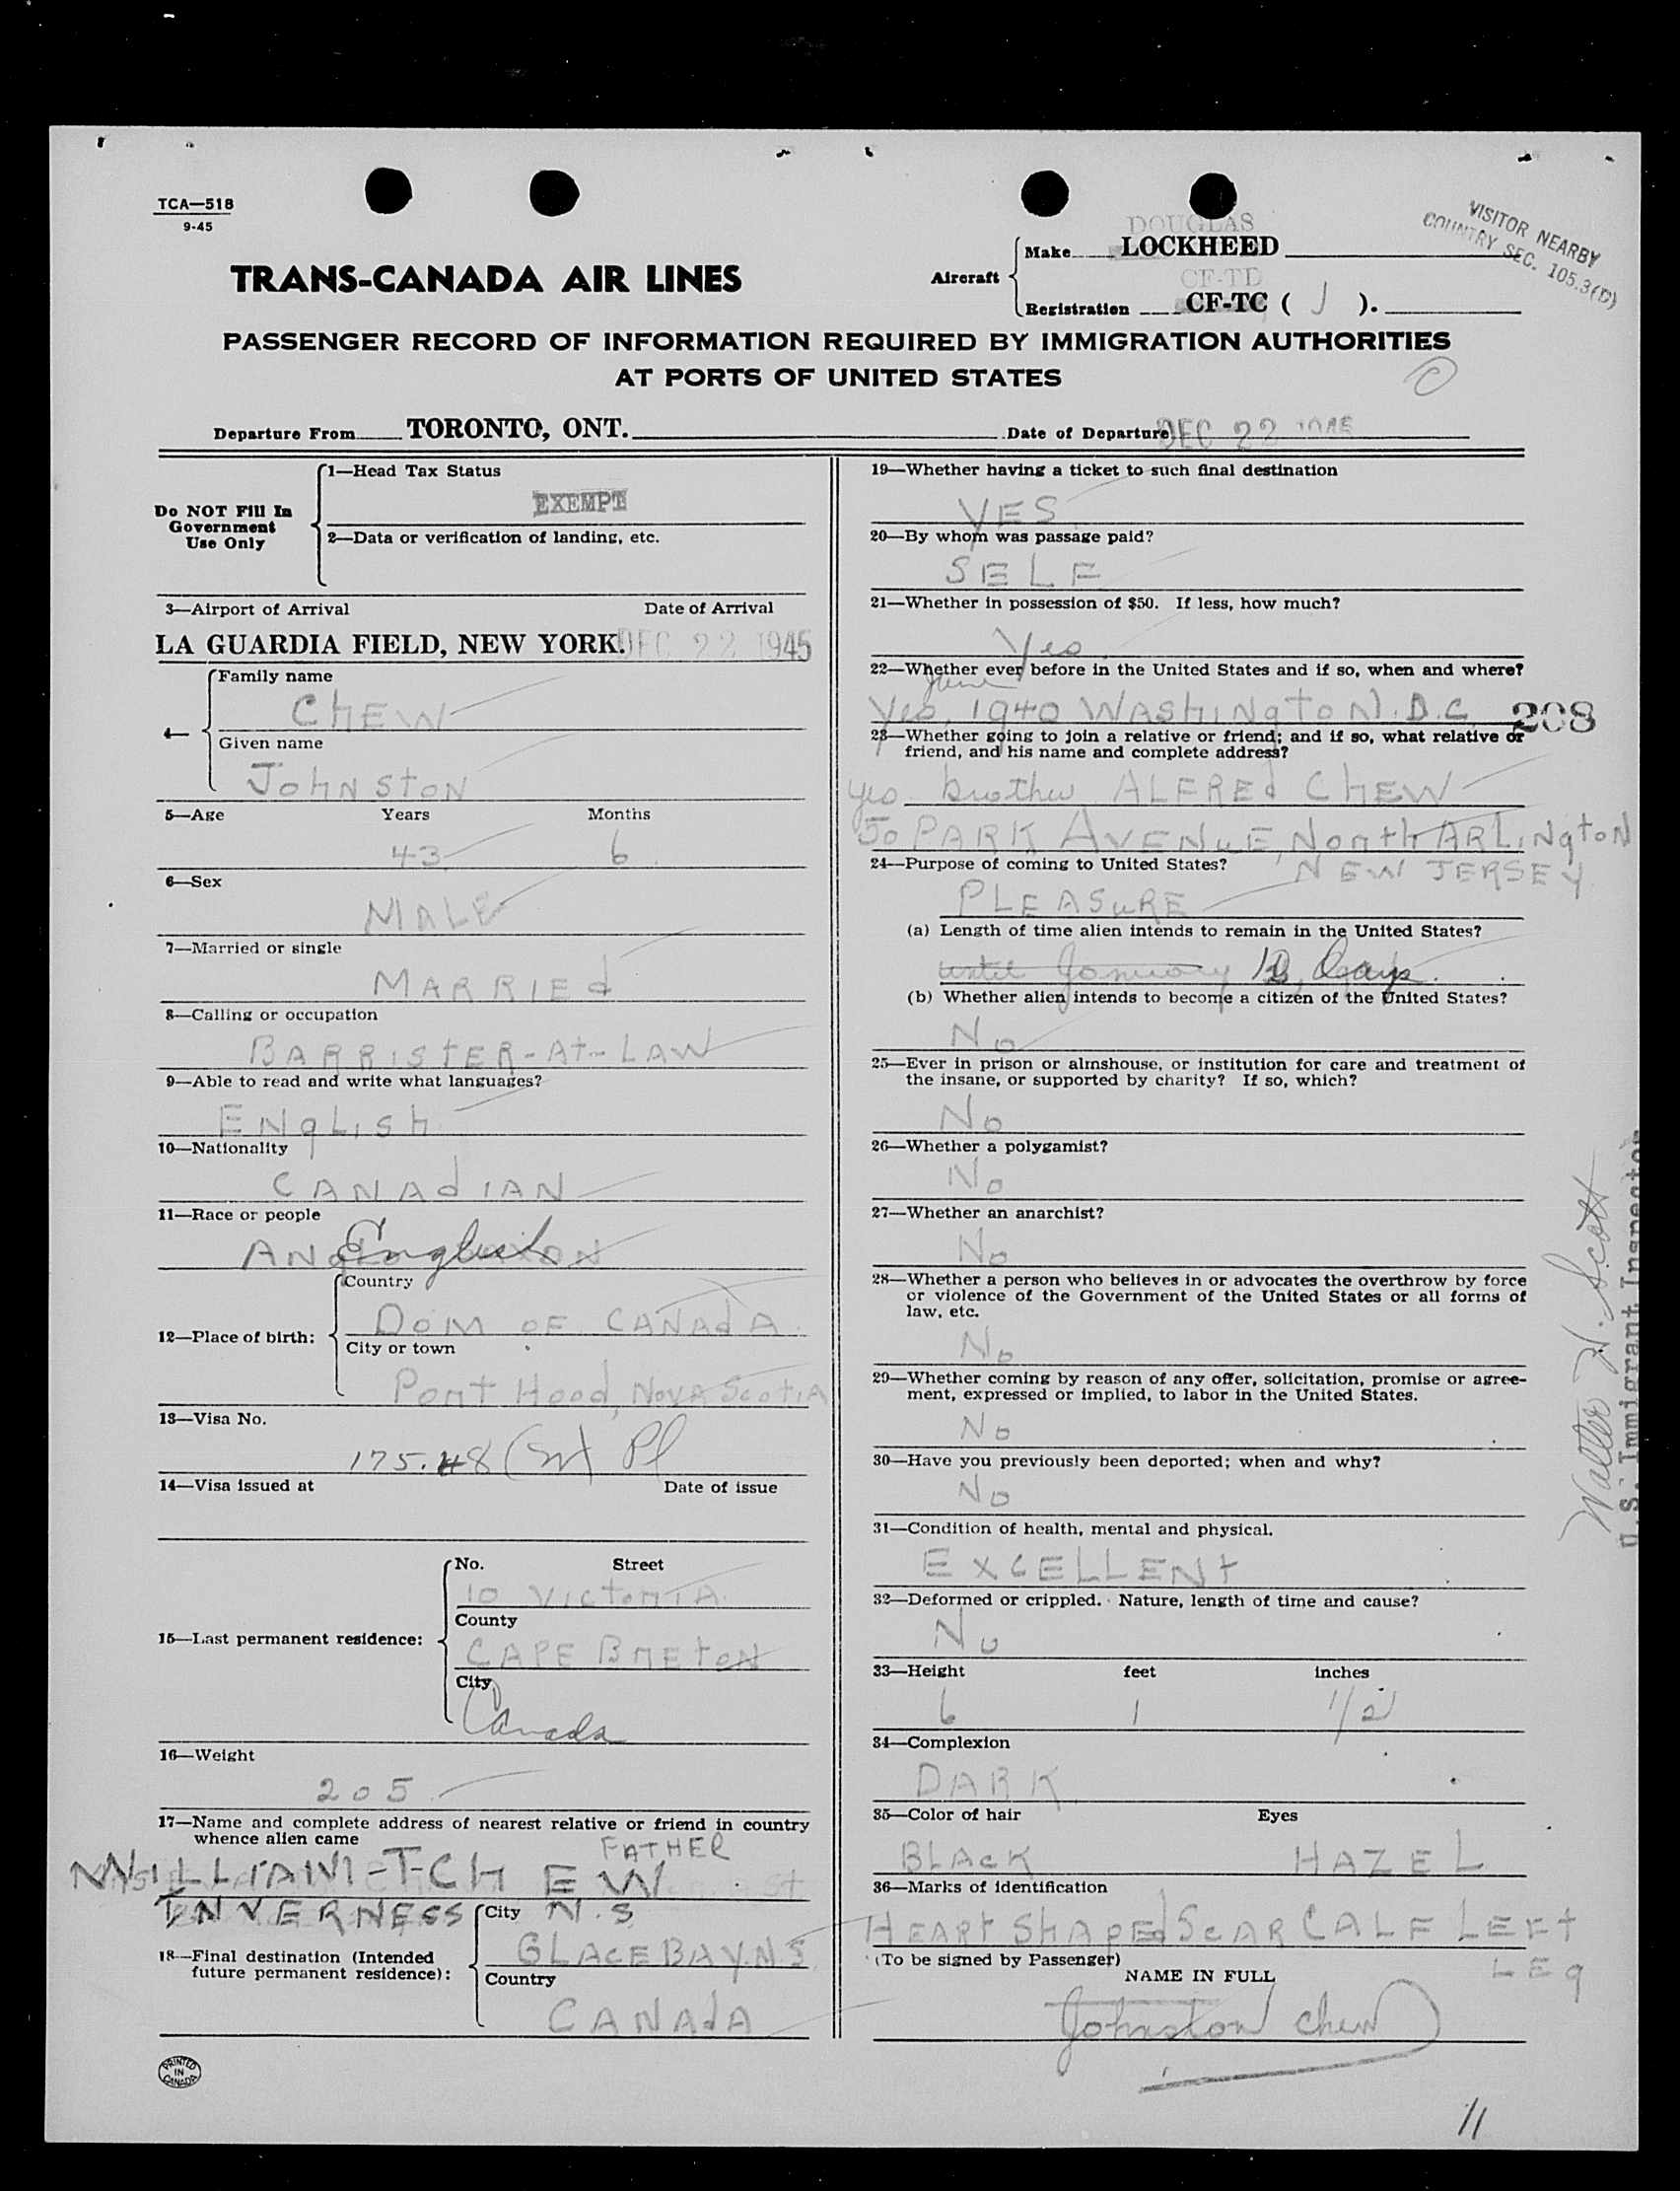 TCA—518
9-45
VISITOR NEARBY
COUNTRY SEC. 105.3(D)
DOUGLAS
Aircraft
Make LOCKHEED
CF-TD
Registration CF-TC ( J ).
TRANS-CANADA AIR LINES
PASSENGER RECORD OF INFORMATION REQUIRED BY IMMIGRATION AUTHORITIES
AT PORTS OF UNITED STATES
Departure From TORONTO, ONT. Date of Departure DEC 22 1945
Do NOT Fill In
Government
Use Only
1—Head Tax Status
EXEMPT
2—Data or verification of landing, etc.
3—Airport of Arrival Date of Arrival
LA GUARDIA FIELD, NEW YORK. DEC 22 1945
4—
Family name
CHEW
Given name
JOHNSTON
5—Age Years Months
43 6
6—Sex
MALE
7—Married or single
MARRIEd
8—Calling or occupation
BARRISTER-At-LAW
9—Able to read and write what languages?
ENgLish
10—Nationality
CANAdIAN
11—Race or people
English
12—Place of birth:
Country
DOM OF CANAdA
City or town
Port Hood, NOVA Scotia
13—Visa No.
175.48
14—Visa issued at Date of issue
15—Last permanent residence:
No. Street
10 VICTORIA
County
CAPE BRETON
City
Canada
16—Weight
205
17—Name and complete address of nearest relative or friend in country
whence alien came
FATHER
WILLIAM-T-CHEW
INVERNESS N.S.
18—Final destination (Intended
future permanent residence):
City
GLACE BAY. N.S.
Country
CANAdA
PRINTED
IN
CANADA
19—Whether having a ticket to such final destination
YES
20—By whom was passage paid?
SELF
21—Whether in possession of $50. If less, how much?
Yes
22—Whether ever before in the United States and if so, when and where?
June
Yes, 1940 WAShINgtoN. D.C. 208
23—Whether going to join a relative or friend; and if so, what relative or
friend, and his name and complete address?
yes brother ALFREd CHEW
50 PARK AVENuE, North ARLINgtoN
NEW JERSEY
24—Purpose of coming to United States?
PLEASuRE
(a) Length of time alien intends to remain in the United States?
until January Days.
(b) Whether alien intends to become a citizen of the United States?
No
25—Ever in prison or almshouse, or institution for care and treatment of
the insane, or supported by charity? If so, which?
No
26—Whether a polygamist?
No
27—Whether an anarchist?
No
28—Whether a person who believes in or advocates the overthrow by force
or violence of the Government of the United States or all forms of
law, etc.
No
29—Whether coming by reason of any offer, solicitation, promise or agree-
ment, expressed or implied, to labor in the United States.
No
30—Have you previously been deported; when and why?
No
31—Condition of health, mental and physical.
EXCELLENt
32—Deformed or crippled. Nature, length of time and cause?
No
33—Height feet inches
6 1 1/2
34—Complexion
DARK
35—Color of hair Eyes
BLACK HAZEL
36—Marks of identification
HEARt SHAPEd ScAR CALF LEFt
LEg
(To be signed by Passenger)
NAME IN FULL
Johnston Chew
Walter H. Scott
U.S. Immigrant Inspector
11